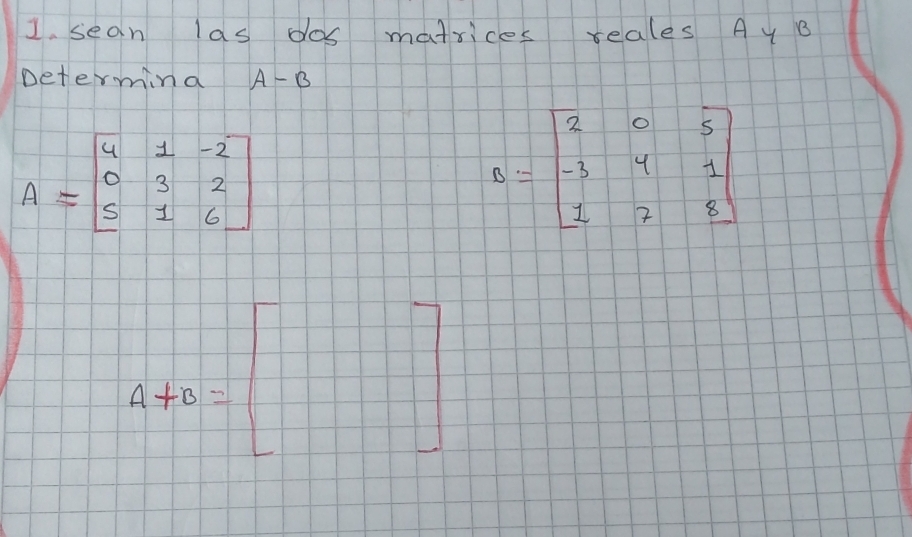 1. sean las dos matrices reales A y B
Determina A-B
A = [4 1 -2
0 3 2
5 1 6]
B = [2 0 5
-3 4 1
1 7 8]
A+B = [ ]